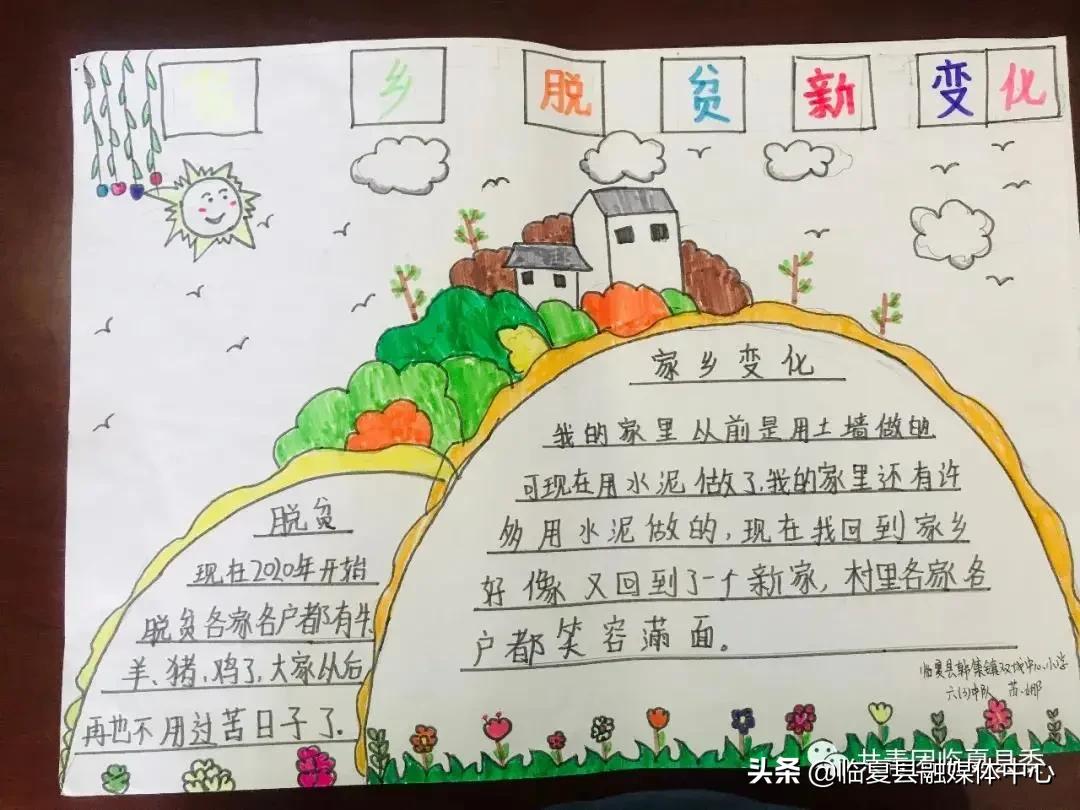 家乡脱贫新变化
家乡变化
我的家里从前是用土墙做的
可现在用水泥做了,我的家里还有许
多用水泥做的,现在我回到家乡
好像又回到了一个新家,村里各家各
户都笑容满面。
脱贫
现在2020年开始
脱贫各家各户都有牛、
羊、猪、鸡了,大家从后
再也不用过苦日子了.
临夏县韩集镇双城中心小学
六(3)中队
共青团临夏县委
头条 @临夏县融媒体中心